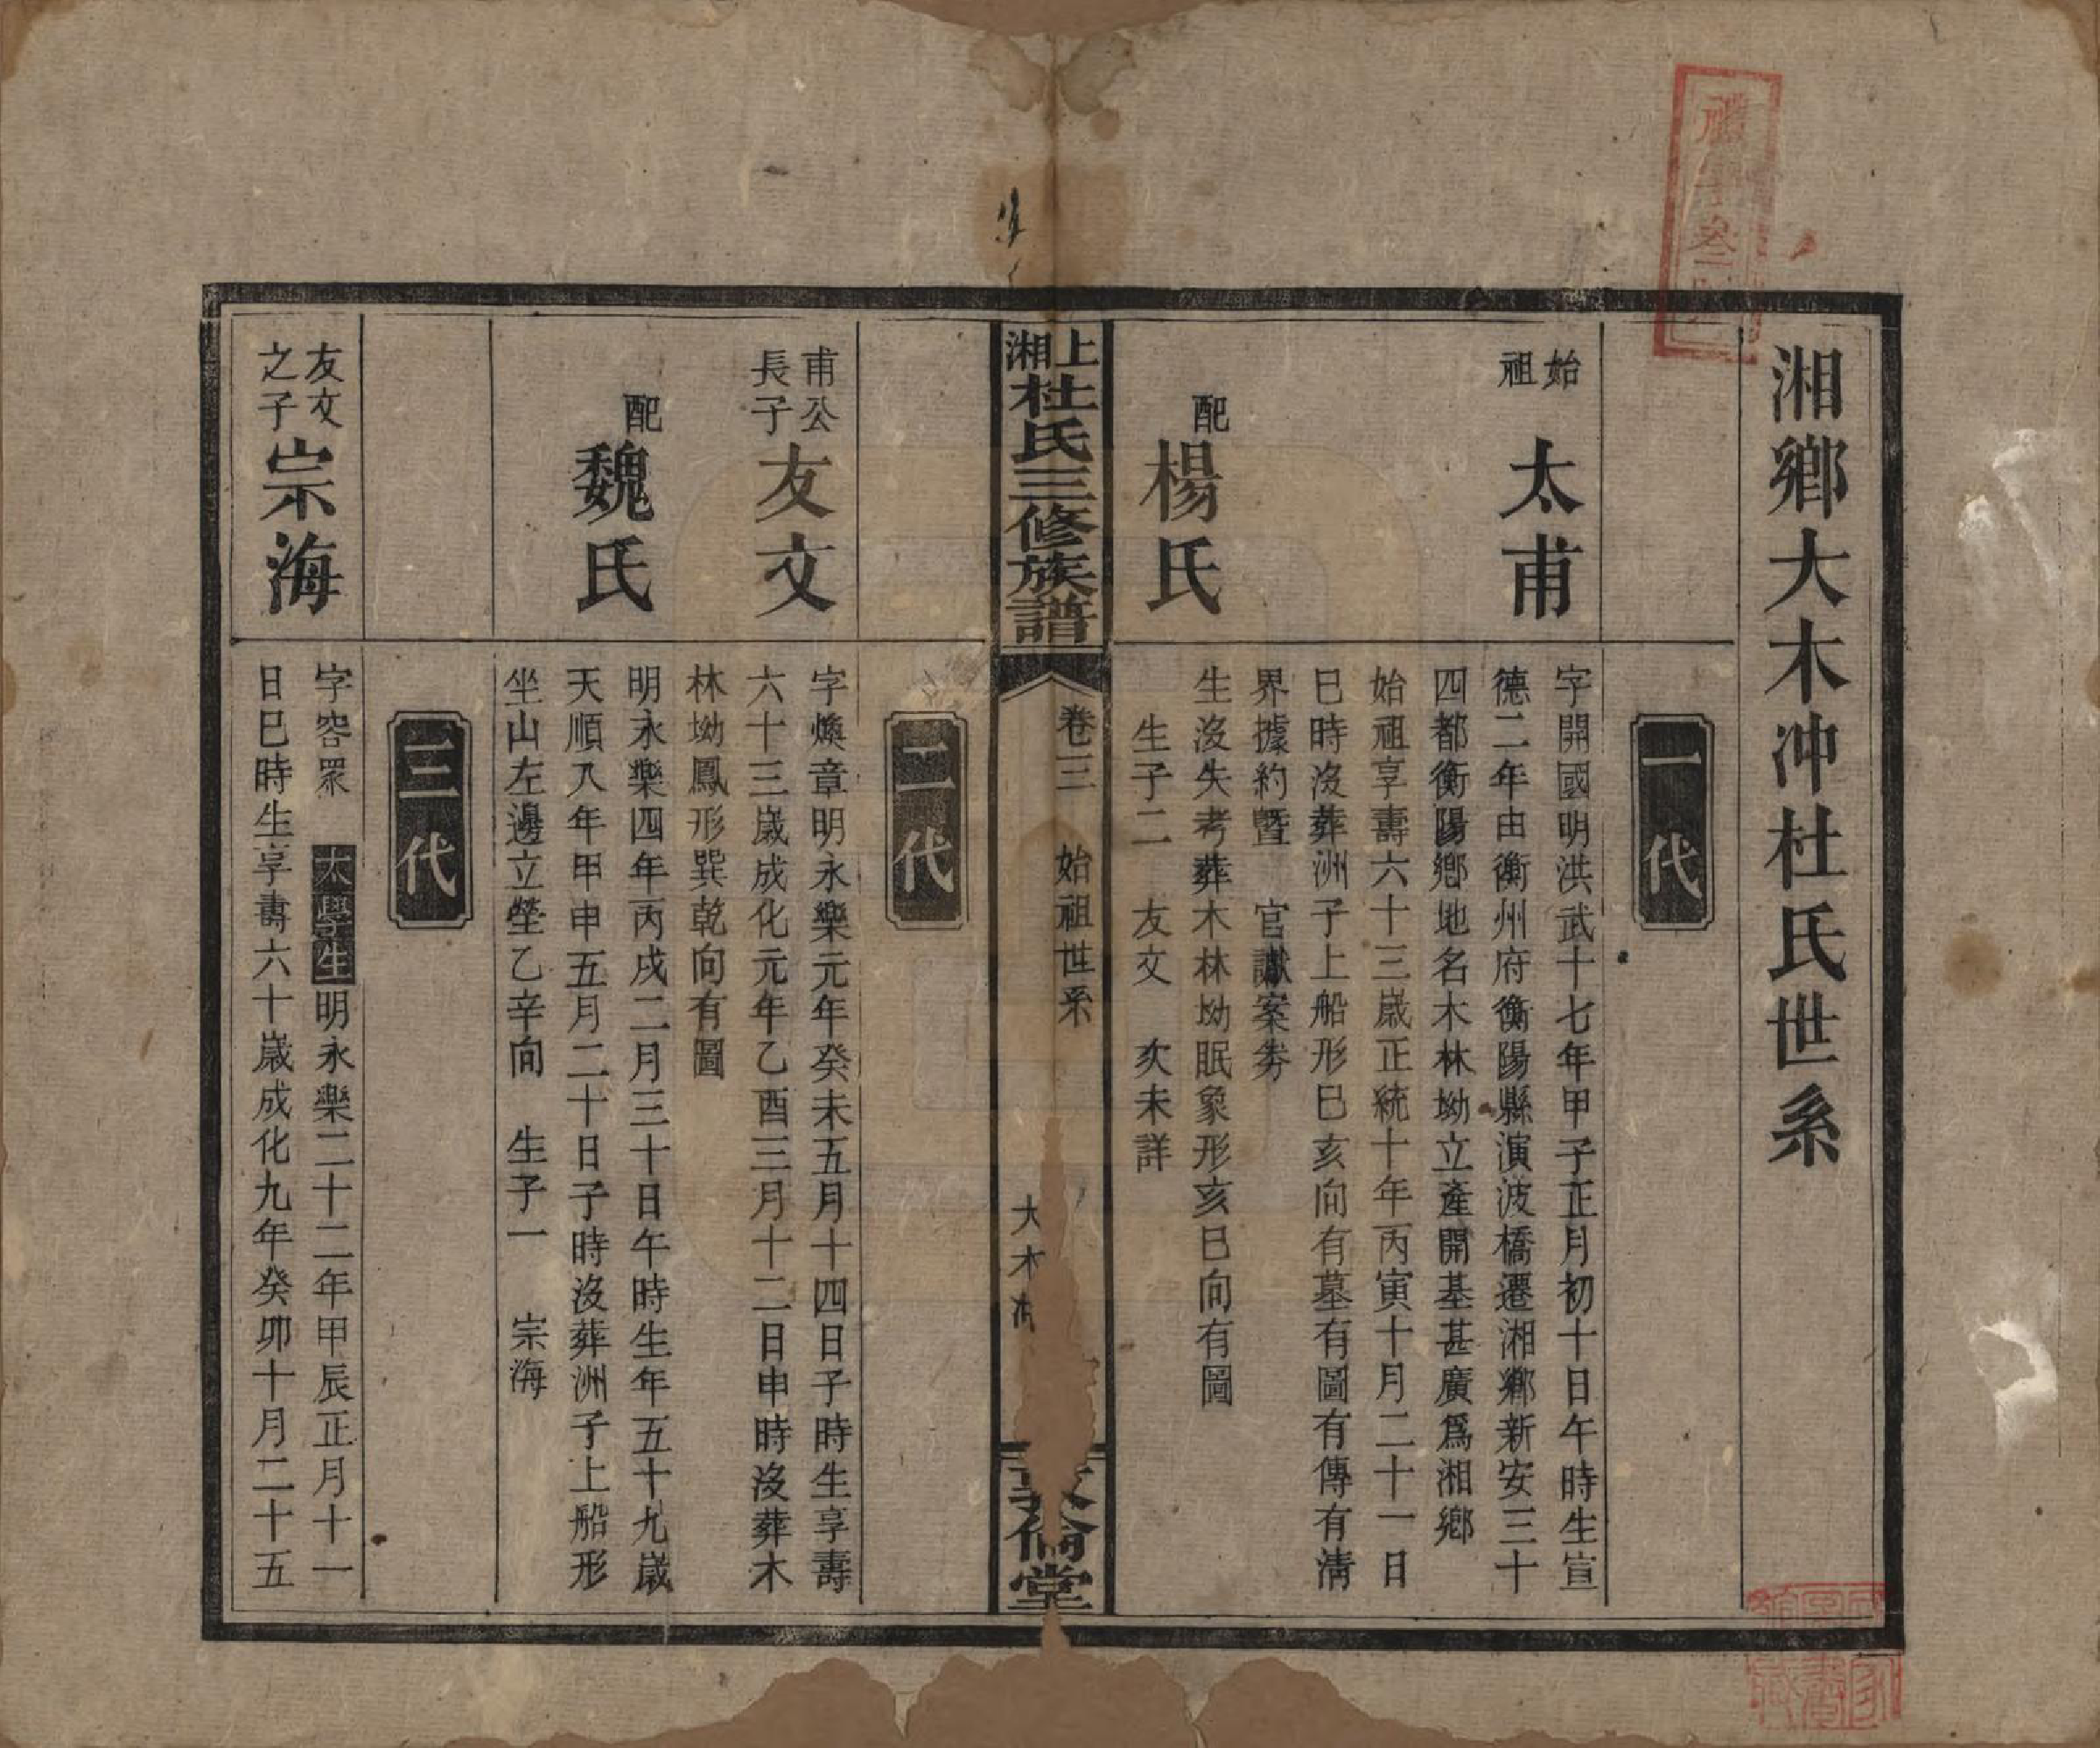 湘鄉大木沖杜氏世系
一代
始祖
太甫
字開國明洪武十七年甲子正月初十日午時生宣
德二年由衡州府衡陽縣演波橋遷湘鄉新安三十
四都衡陽鄉地名木林坳立產開基甚廣爲湘鄉
始祖享壽六十三歲正統十年丙寅十月二十一日
巳時沒葬洲子上船形巳亥向有墓有圖有傳有淸
界據約暨 官讞案券
配
楊氏
生沒失考葬木林坳眠象形亥巳向有圖
生子二 友文 次未詳
上湘杜氏三修族譜
卷三 始祖世系
大木
倫堂
二代
甫公長子
友文
字煥章明永樂元年癸未五月十四日子時生享壽
六十三歲成化元年乙酉三月十二日申時沒葬木
林坳鳳形巽乾向有圖
配
魏氏
明永樂四年丙戌二月三十日午時生年五十九歲
天順八年甲申五月二十日子時沒葬洲子上船形
坐山左邊立塋乙辛向 生子一 宗海
三代
友文之子
宗海
字容眾 太學生明永樂二十二年甲辰正月十一
日巳時生享壽六十歲成化九年癸卯十月二十五